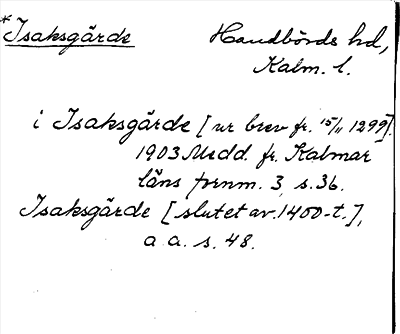 *Isaksgärde Handbörds hd,
Kalm. l.
i Isaksgärde [ur brev fr. 15/11 1299].
1903 Medd. fr. Kalmar
läns fornm. 3, s. 36.
Isaksgärde [slutet av 1400-t.],
a. a. s. 48.